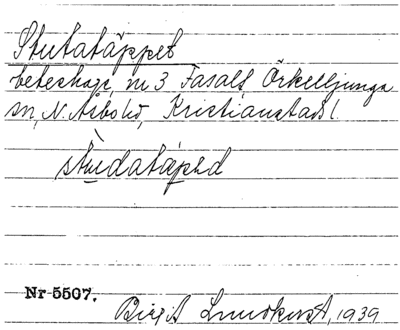 Stutatäppet
beteshage, nr 3 Fasalt, Örkelljunga
sn, N. Åsbo hd, Kristianstads l.
stùdatäpəd
Nr 5507.
Birgit Lundkvist, 1939